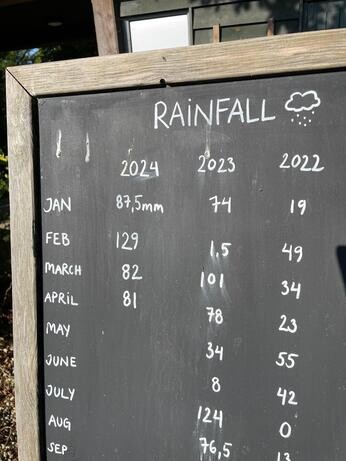 RAINFALL
2024 2023 2022
JAN 87,5mm 74 19
FEB 129 1,5 49
MARCH 82 101 34
APRIL 81 78 23
MAY 34 55
JUNE 8 42
JULY 124 0
AUG 76,5 13
SEP